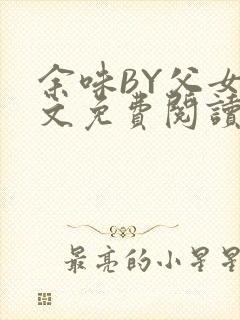 余味BY父女
文免費閱讀
最亮的小星星